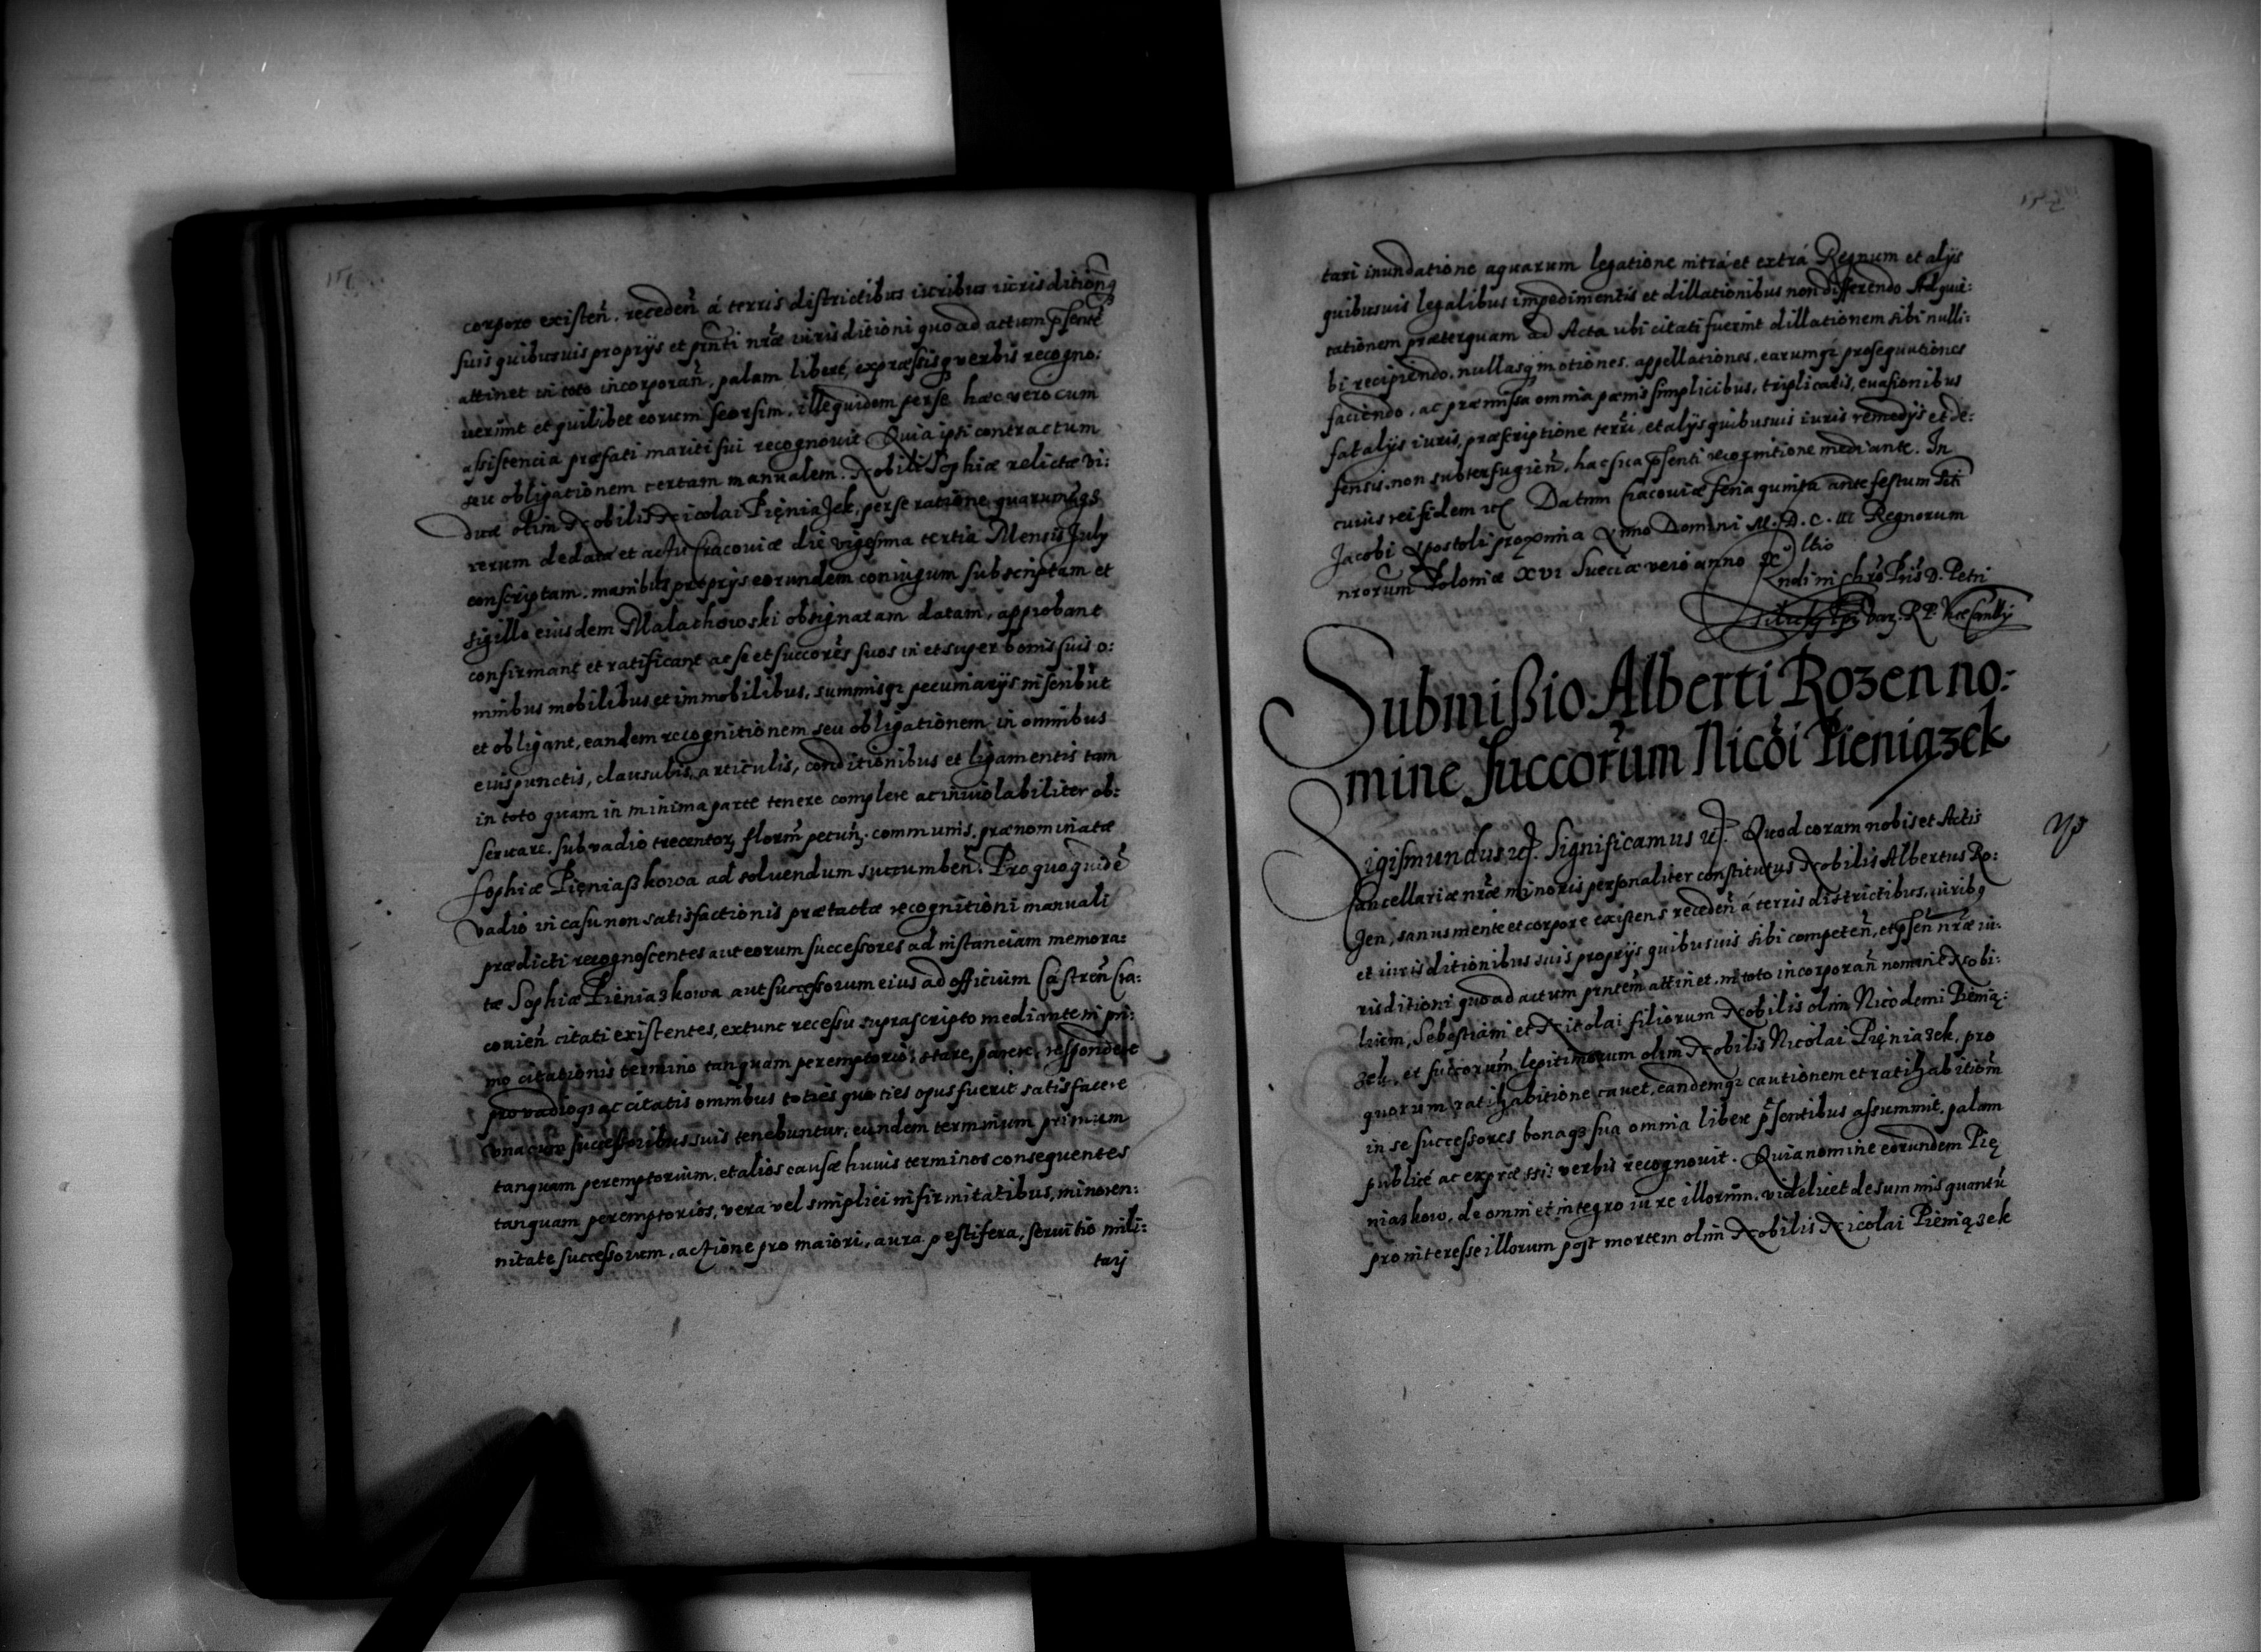 corpore existeñ. recedeñ á terris districtibus iuribus iurisditioñq
suis quibusuis proprijs et pñti nrãe iurisditioni quo ad actum pñsentẽ
attinet in toto incorporañ, palam liberé, expræssisq verbis recogno:
uerũnt et quilibet eorum seorsim, ille quidem per se hæc vero cum
assistencia præfati mariti sui recognouit Quia ipsi contractum
seu obligationem certam manualem. Nobili Sophiæ relictæ vi:
duæ olim Nobilis Nicolai Pięniazek, per se ratione quarumq3
rerum de data et actu Cracouiæ die vigesima tertia Mensis July
conscriptam, manibus proprijs eorundem coniugum subscriptam et
sigillo eiusdem Malachowski obsignatam datam, approbant
confirmant et ratificant ac se et succorẽs suos in et super bonis suis o:
mnibus mobilibus et immobilibus, summisq3 pecuniarijs inscribũt
et obligant, eandem recognitionem seu obligationem in omnibus
eius punctis, clausulis, articulis, conditionibus et ligamentis tam
in toto quam in minima parte tenere complere ac inuiolabiliter ob:
seruare. sub vadio trecentor, florm̃ pecuñ. communis. prænominatæ
Sophiæ Pięniaszkowa ad soluendum succumbeñ. Pro quo quidẽ
vadio in casu non satisfactionis prætactæ recognitioni manuali
prædicti recognoscentes aut eorum successores ad instanciam memora:
tæ Sophiæ Pieniazkowa aut successorum eius ad officium Castreñ Cra:
couieñ citati existentes, extunc recessu suprascripto mediante in pri:
mo citationis termino tanquam peremptorio, stare, parere, respondere
pro vadioq3 ac citatis omnibus toties quoties opus fuerit satisfacere
vna cum successoribus suis tenebuntur, eundem terminum primum
tanquam peremptorium, et alios causæ huius terminos consequentes
tanquam peremptorios, vera vel simplici infirmitatibus, minoren:
nitate successorum, actione pro maiori, aura pestifera, seruitio mili:
tarj
tari inundatione aquarum legatione intrá et extrá Regnum et alijs
quibusuis legalibus impedimentis et dillationibus non differendo Ad quie:
tationem præterquam ad Acta vbi citati fuerint dillationem sibi nulli:
bi recipiendo, nullasq motiones, appellationes, earumq3 prosequutiones
faciendo, ac præmissa omnia pœnis simplicibus, triplicatis, euasionibus
fatalijs iuris, præscriptione terri, et alijs quibusuis iuris remedijs et de:
fensis, non subterfugieñ, hac sua pñsenti recognitione mediante. In
cuius rei fidem etc Datum Cracouiæ feria quinta ante festum Sti
Jacobi Apostoli proxima Anno Domini M. D. C. III Regnorum
nrorum Poloniæ XVI Sueciæ vero anno X
Rndi in Chrõ Pris D. Petri
Submißio Alberti Rozen no:
mine Succorũm Nicõi Pieniazek
Sigismundus etc. Significamus etc. Quod coram nobis et Actis
Cancellariæ nrãe minoris personaliter constitutus Nobilis Albertus Ro:
zen, sanus mente et corpore existens recedeñ á terris districtibus, iuribq
et iurisditionibus suis proprijs quibusuis sibi competeñ, et pñseñ nrãe iu:
risditioni quo ad actum pñtem attinet. in toto incorporañ nomine Nobi:
lium, Sebestiani et Nicolai filiorum Nobilis olim Nicodemi Pienią:
zek, et succorum̃ legitimorum olim Nobilis Nicolai Pięniazek, pro
quorum ratihabitione cauet, eandemq3 cautionem et ratihabitiom̃
in se successores bonaq3 sua omnia libere pñsentibus assummit, palam
publicé ac expræssis verbis recognouit. Quia nomine eorundem Pię
niazkow, de omni et integro iure illorum̃, videlicet de summis quantũ
pro interesse illorum post mortem olim Nobilis Nicolai Pieniązek